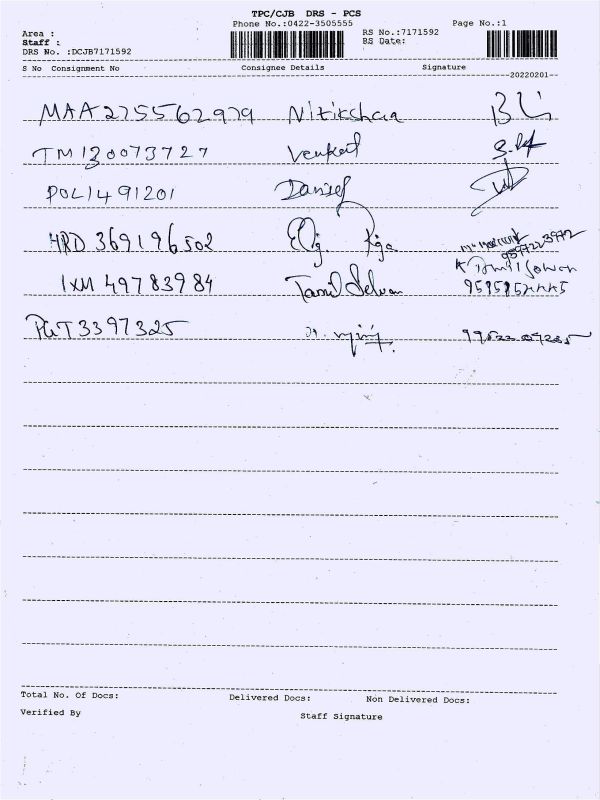 TPC/CJB DRS - PCS
Phone No.:0422-3505555
Page No.:1
Area :
Staff :
DRS No. :DCJB7171592
RS No.:7171592
RS Date:
S No Consignment No Consignee Details Signature
20220201
MAA2755562979 Nitikshaa
TM130073727 Venkat
POL1491201 Daniel
HRD 369196502
IXM 49783984 Tamil Selvan K Tamil Selvan
PNT3397325 Dr.
Total No. Of Docs: Delivered Docs: Non Delivered Docs:
Verified By Staff Signature